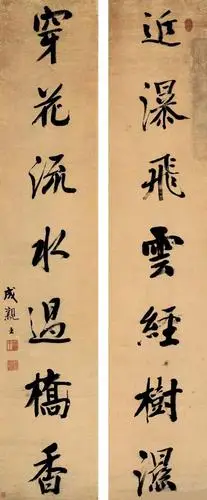 近瀑飛雲經樹濕
穿花流水過橋香
成親王